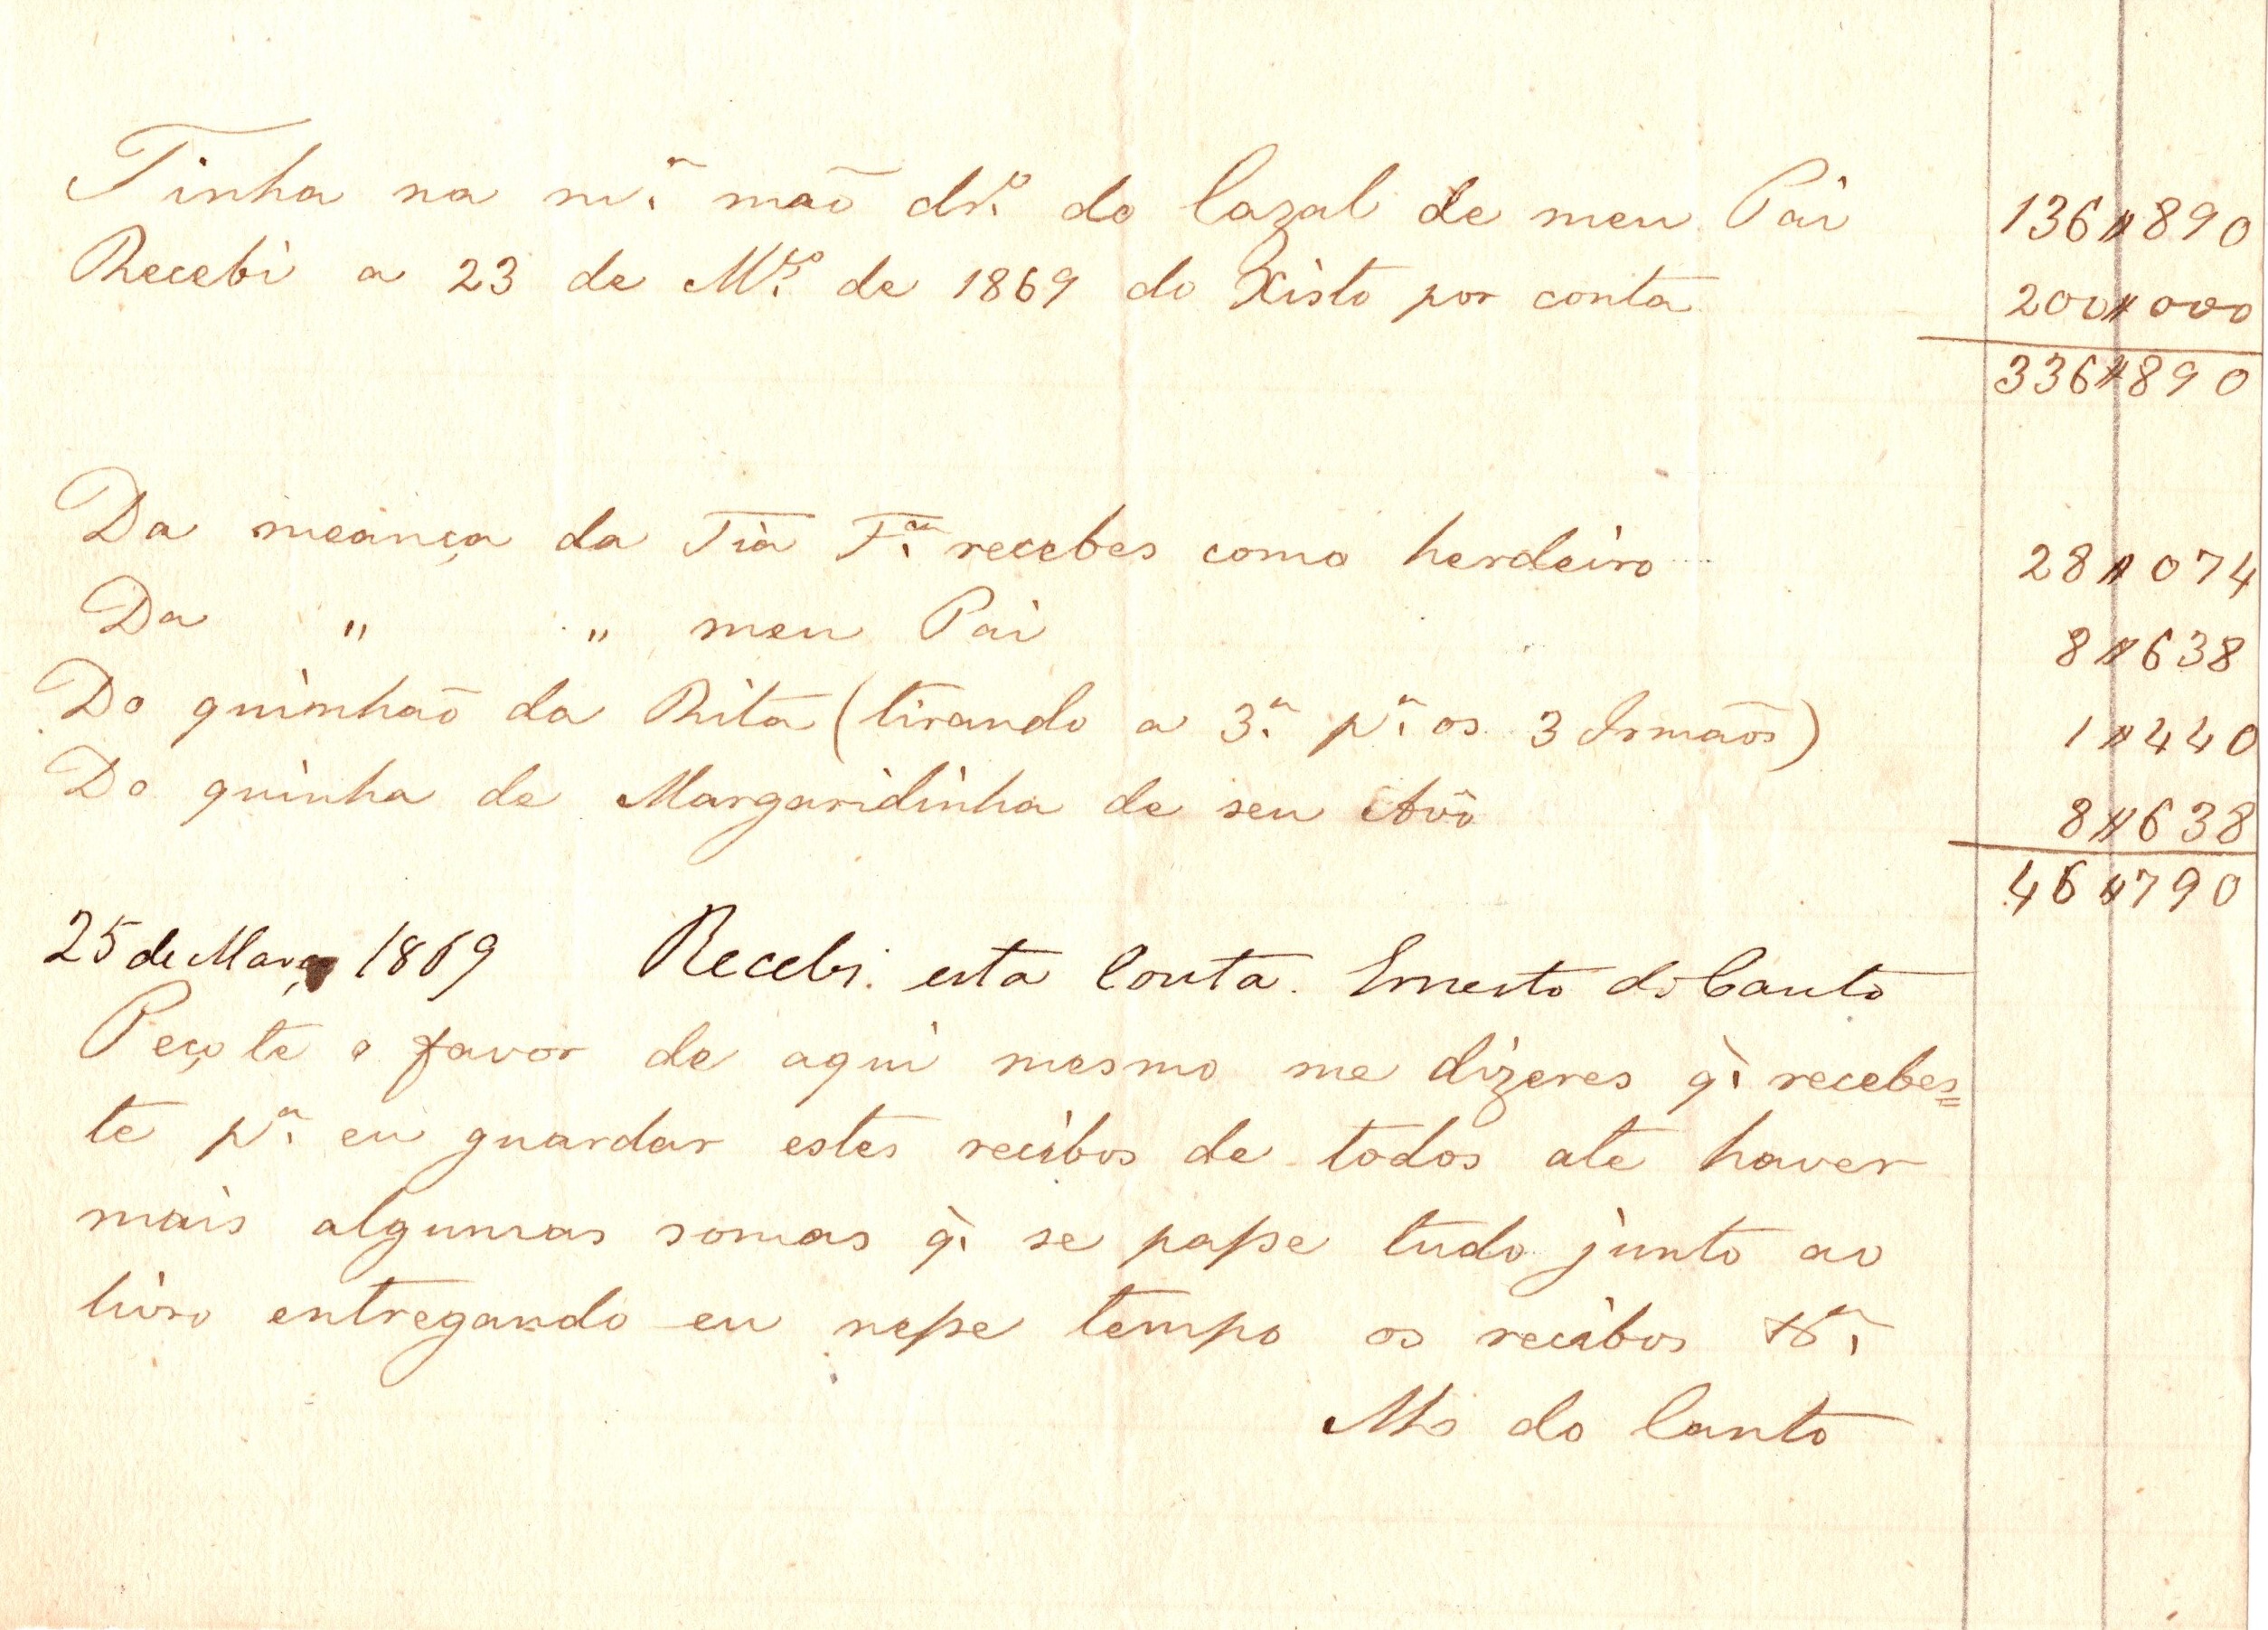 Tinha na m.ª mão dr.º do Cazal de meu Pai 136$890
Recebi a 23 de M.ço de 1869 do Xisto por conta 200$000
336$890
Da meança da Tia F.ca recebes como herdeiro 28$074
Da " " meu Pai 8$638
Do quinhão da Rita (tirando a 3.ª p.ª os 3 Irmãos) 1$440
Do quinha de Margaridinha de seu Avô 8$638
46$790
25 de Março 1869 Recebi esta Conta. Ernesto do Canto
Peço te o favor de aqui mesmo me dizeres q. recebes=
te p.ª eu guardar estes recibos de todos até haver
mais algumas somas q. se passe tudo junto ao
livro entregando eu nesse tempo os recibos
do Canto